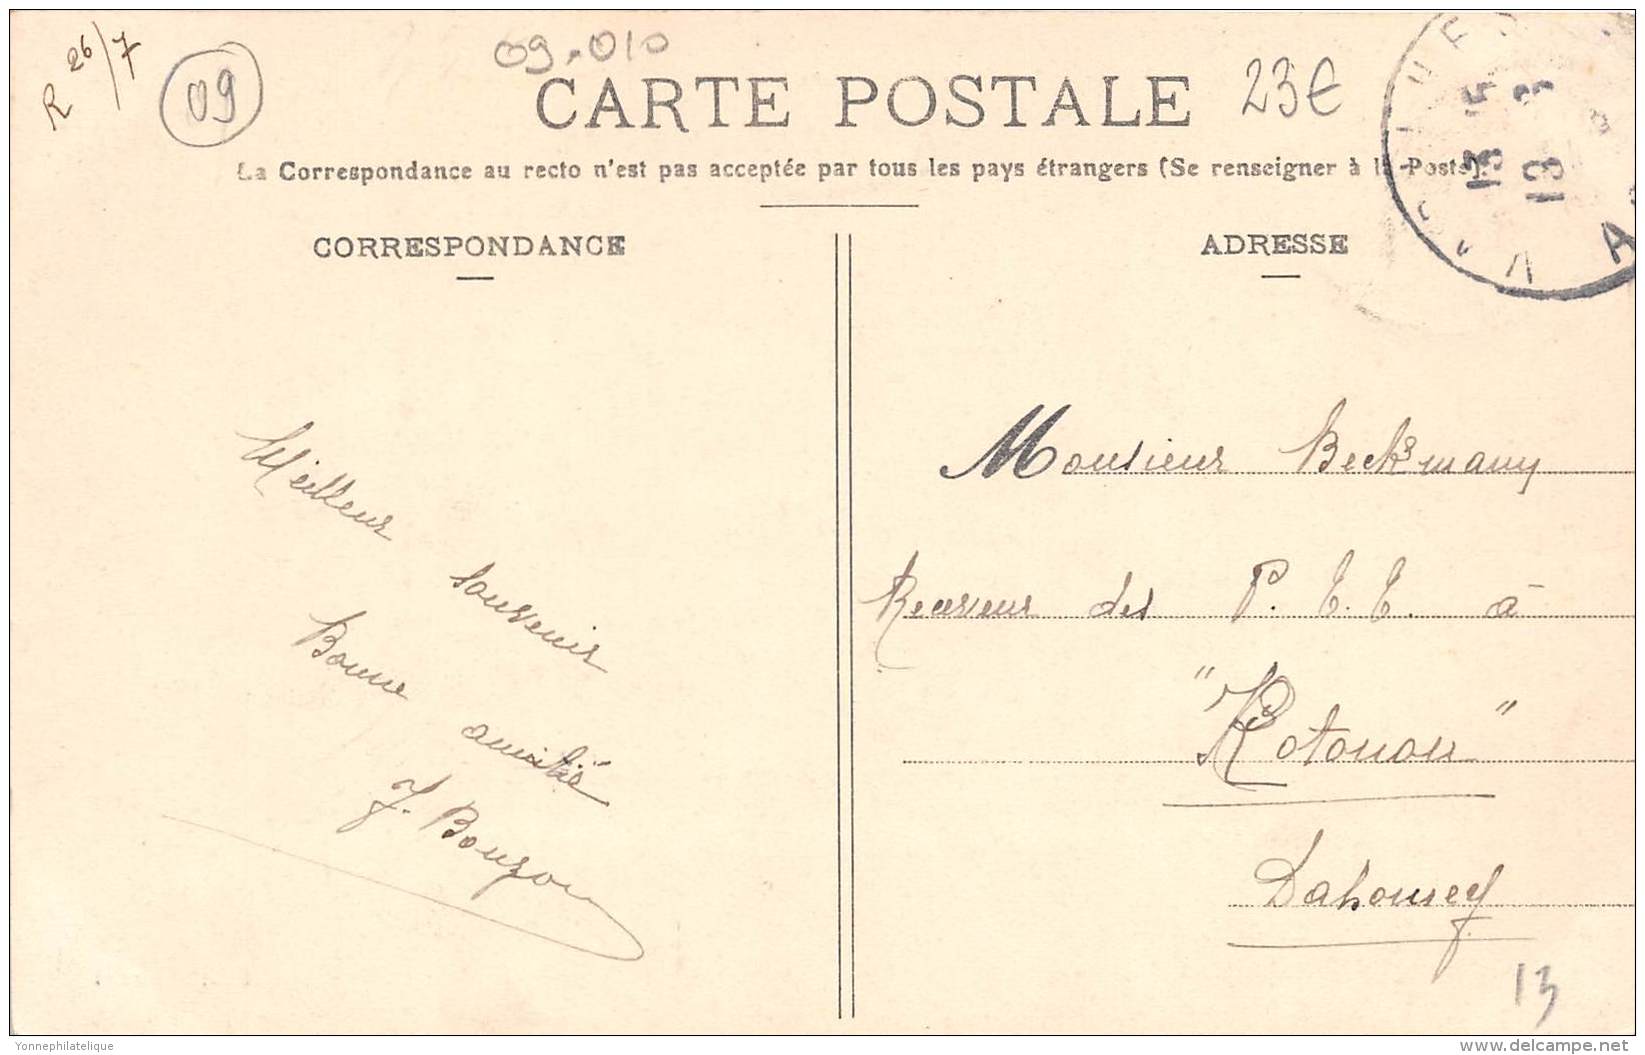 R 26/7
09
09.010
CARTE POSTALE
23€
La Correspondance au recto n'est pas acceptée par tous les pays étrangers (Se renseigner à la Poste).
CORRESPONDANCE
Meilleur souvenir
Bonne amitié
J. Bouzon
ADRESSE
Monsieur
Receveur des P. T. T. à
"Kotonou"
Dahomey
13
Yonnephilatelique
delcampe.net